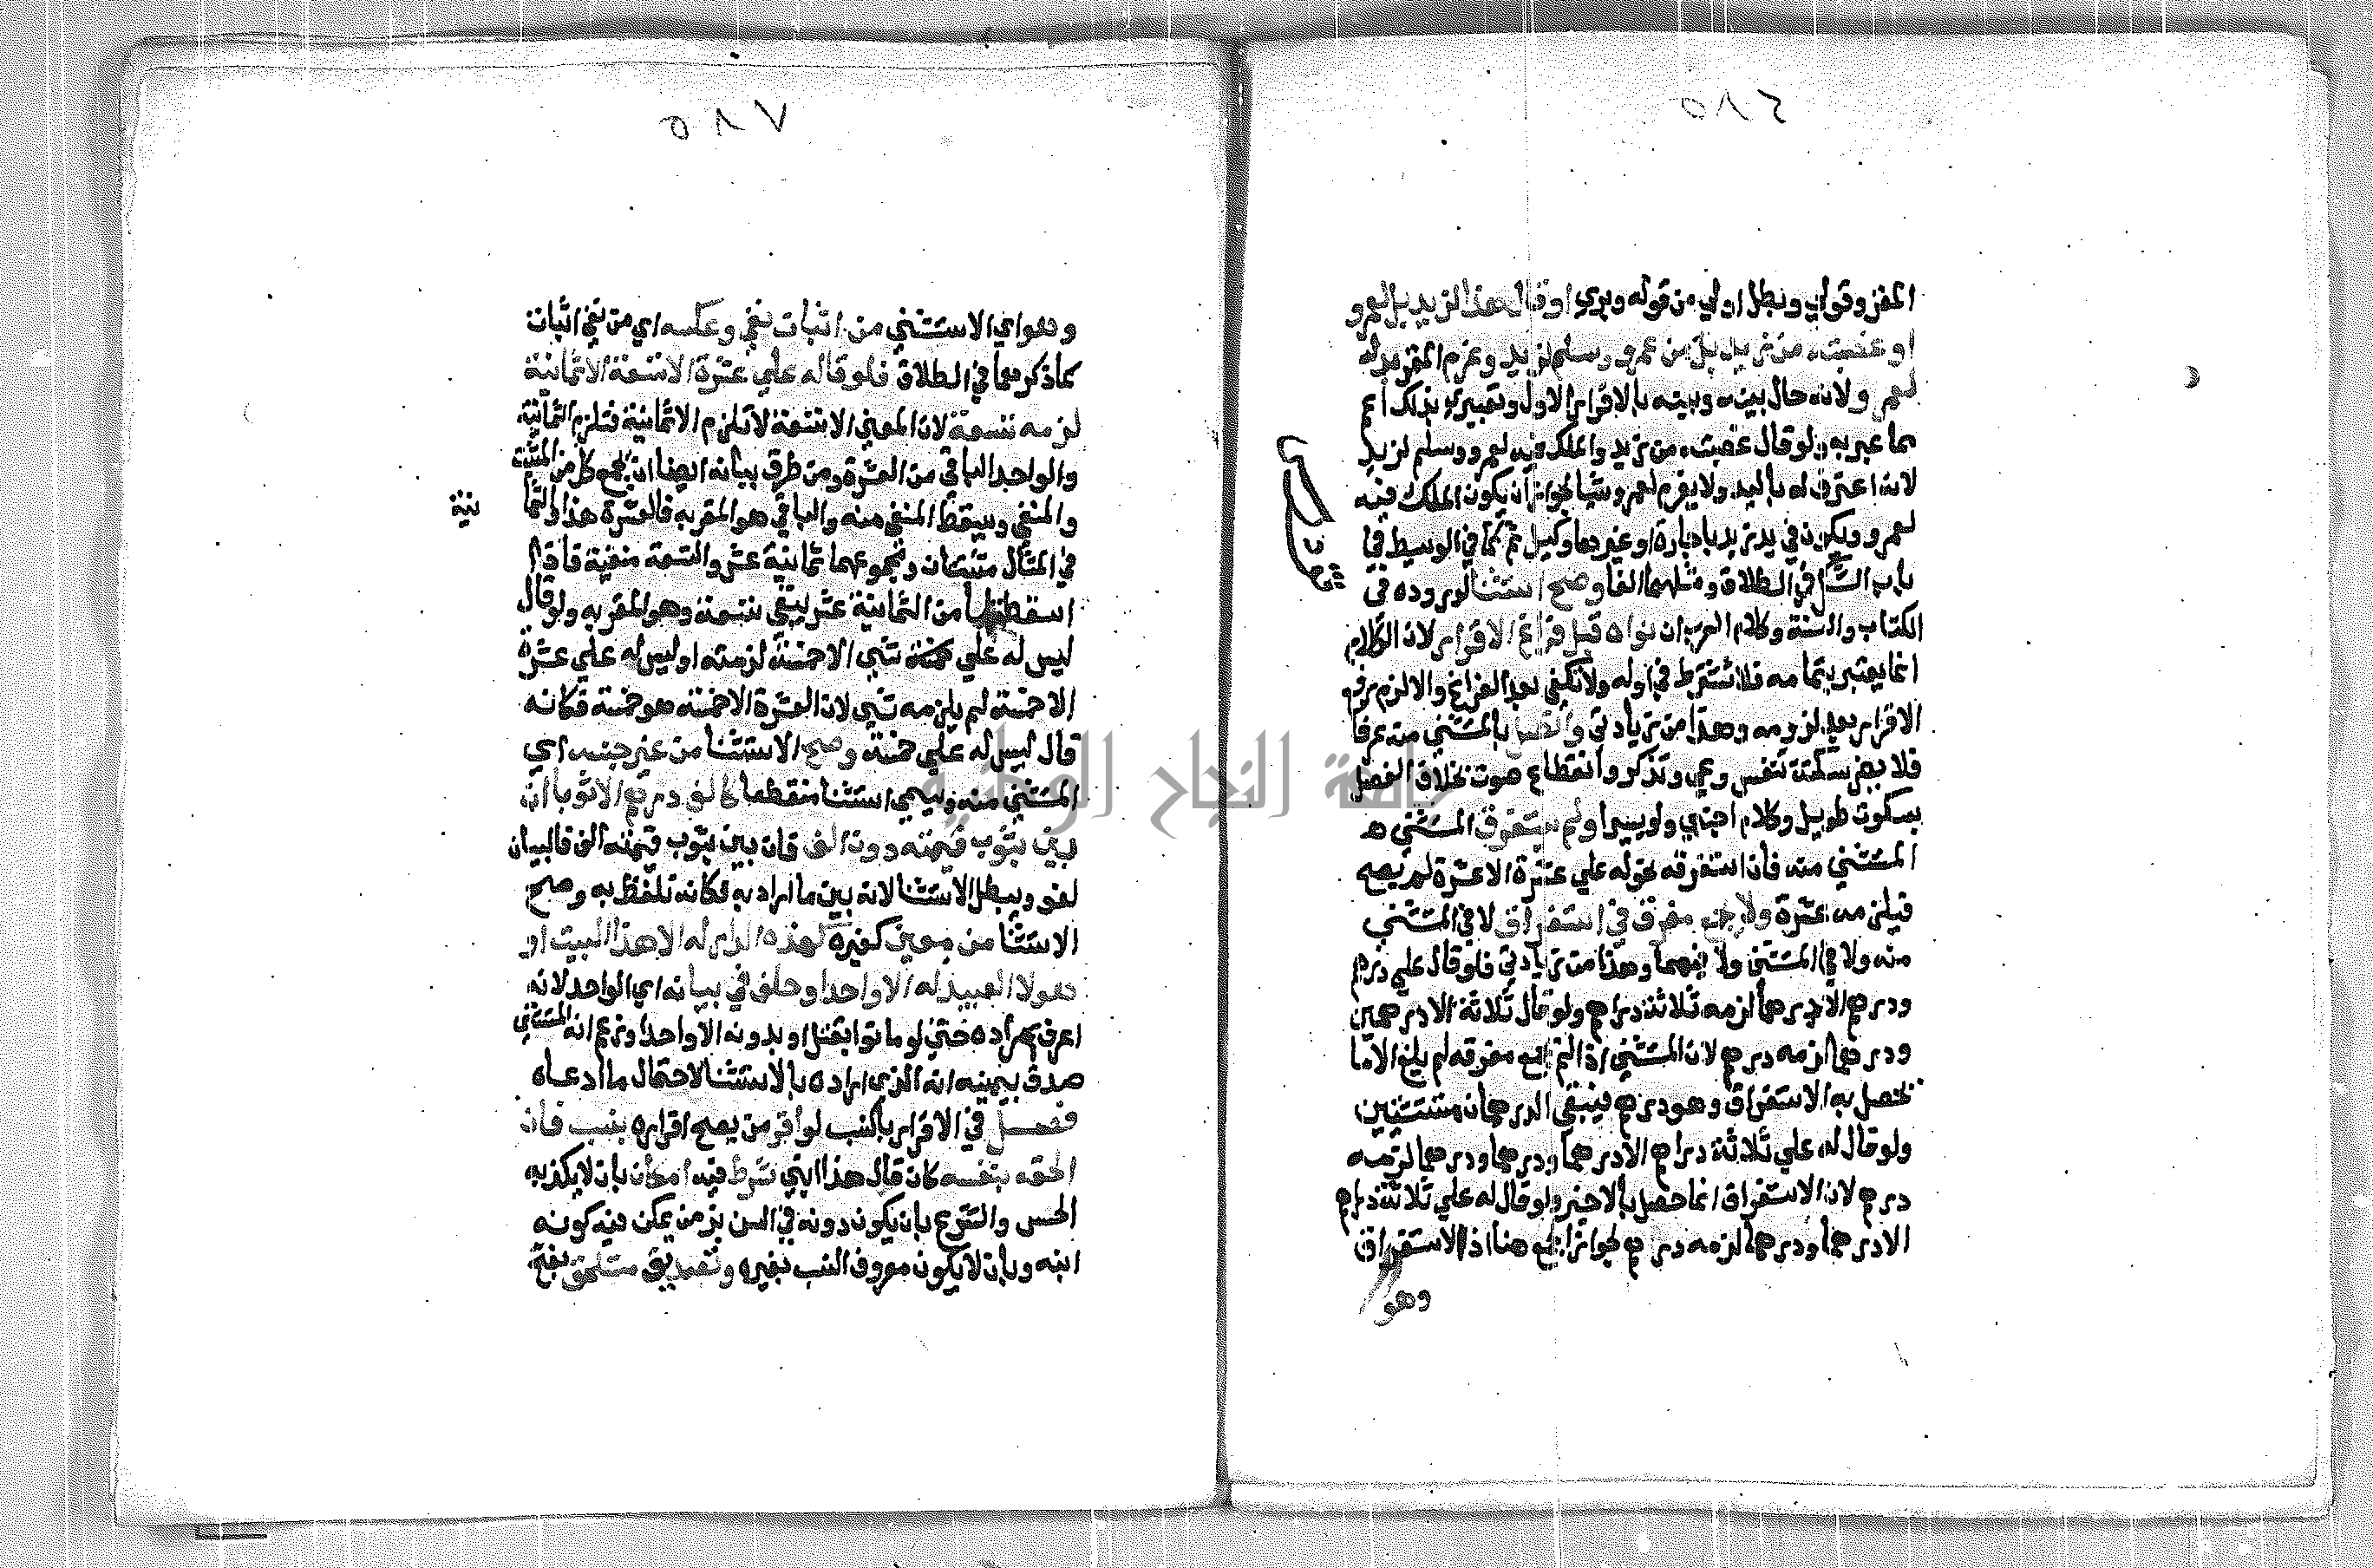 ٥٨٤
المقر وقولي وبطل اولي من قوله وبري اوقال هذا لزيد بل لعمرو
او غصبته من زيد بل من عمرو وسلم لزيد وغرم المقر بدله
لعمرو لانه حال بينه وبينه بالاقرار الاول وتعبيري بذلك اعم
مما عبر به ولو قال غصبته من زيد والملك فيه لعمرو وسلم لزيد
لانه اعترف له باليد ولا يغرم لعمرو شيا لجواز ان يكون الملك فيه
لعمرو ويكون في يد زيد باجارة او غيرها وكيل ثم كما في الوسيط في
باب الشك في الطلاق ومثلهما الفا وصح استثنا لوروده في
الكتاب والسنة وكلام العرب ان نواه قبل فراغ الاقرار لان الكلام
انما يعتبر بتمامه فلا تشترط في اوله ولا تكفي بعد الفراغ والا لزم رفع
الاقرار بعد لزومه وهذا من زيادتي واتصل بالمستثني منه عرفا
فلا يضر سكتة تنفس وعي وتذكر وانقطاع صوت بخلاف الفصل
بسكوت طويل وكلام اجنبي ولو يسيرا ولم يستغرق المستثني
المستثني منه فان استغرقه نحو له علي عشرة الا عشرة لم يصح
فيلزمه عشرة ولا يجمع مفرق في استغراق لا في المستثني
منه ولا في المستثني ولا فيهما وهذا من زيادتي فلو قال علي درهم
ودرهم الا درهما لزمه ثلاثة دراهم ولو قال ثلاثة الا درهمين
ودرهما لزمه درهم لان المستثني اذا لم يجمع مفرقه لم يلغ الا ما
تحصل به الاستغراق وهو درهم فيبقي الدرهمان مستثنيين
ولو قال له علي ثلاثة دراهم الا درهما ودرهما ودرهما لزمه
درهم لان الاستغراق انما حصل بالاخير ولو قال له علي ثلاثة دراهم
الا درهما ودرهما لزمه درهم لجواز الجمع هنا اذ الاستغراق
وهو
٥٨٧
وهو اي الاستثني من اثبات نفي وعكسه اي من نفي اثبات
كما ذكرهما في الطلاق فلو قال له علي عشرة الا تسعة الا ثمانية
لزمه تسعة لان المعني الا تسعة لا تلزم الا ثمانية فتلزم الثمانية
والواحد الباقي من العشرة ومن طرق بيانه ايضا ان تجمع كل من المثبت
والمنفي ويسقط المنفي منه والباقي هو المقر به فالعشرة هذا والثما
نية
في المثال مثبتتان ومجموعهما ثمانية عشر والتسعة منفية فاذا
اسقطتها من الثمانية عشر يبقي تسعة وهو المقر به ولو قال
ليس له علي شي الا خمسة لزمته او ليس له علي عشرة
الا خمسة لم يلزمه شي لان العشرة الا خمسة هو خمسة فكانه
قال ليس له علي خمسة وصح الاستثنا من غير جنسه اي
المستثني منه ويسمي استثنا منقطعا كالف درهم الا ثوبا ان
بين بثوب قيمته دون الف فان بين بثوب قيمته الف فالبيان
لغو ويبطل الاستثنا لانه بين ما اراد به فكانه تلفظ به وصح
الاستثنا من معين كغيره كهذه الدار له الا هذا البيت او
هولا العبيد له الا واحدا وحلف في بيانه اي الواحد لانه
اعرف بمراده حتي لو ماتوا بقتل او بدونه الا واحدا وزعم انه المستثني
صدق بيمينه انه الذي اراده بالاستثنا لاحتمال ما ادعاه
فصل في الاقرار بالنسب لو اقر من يصح اقراره بنسب فان
الحقه بنفسه كان قال هذا ابني شرط فيه امكان بان لا يكذبه
الحس والشرع بان يكون دونه في السن بزمن يمكن فيه كونه
ابنه وبان لا يكون معروف النسب بغيره وتصديق مستلحق بفتح
جامعة النجاح الوطنية